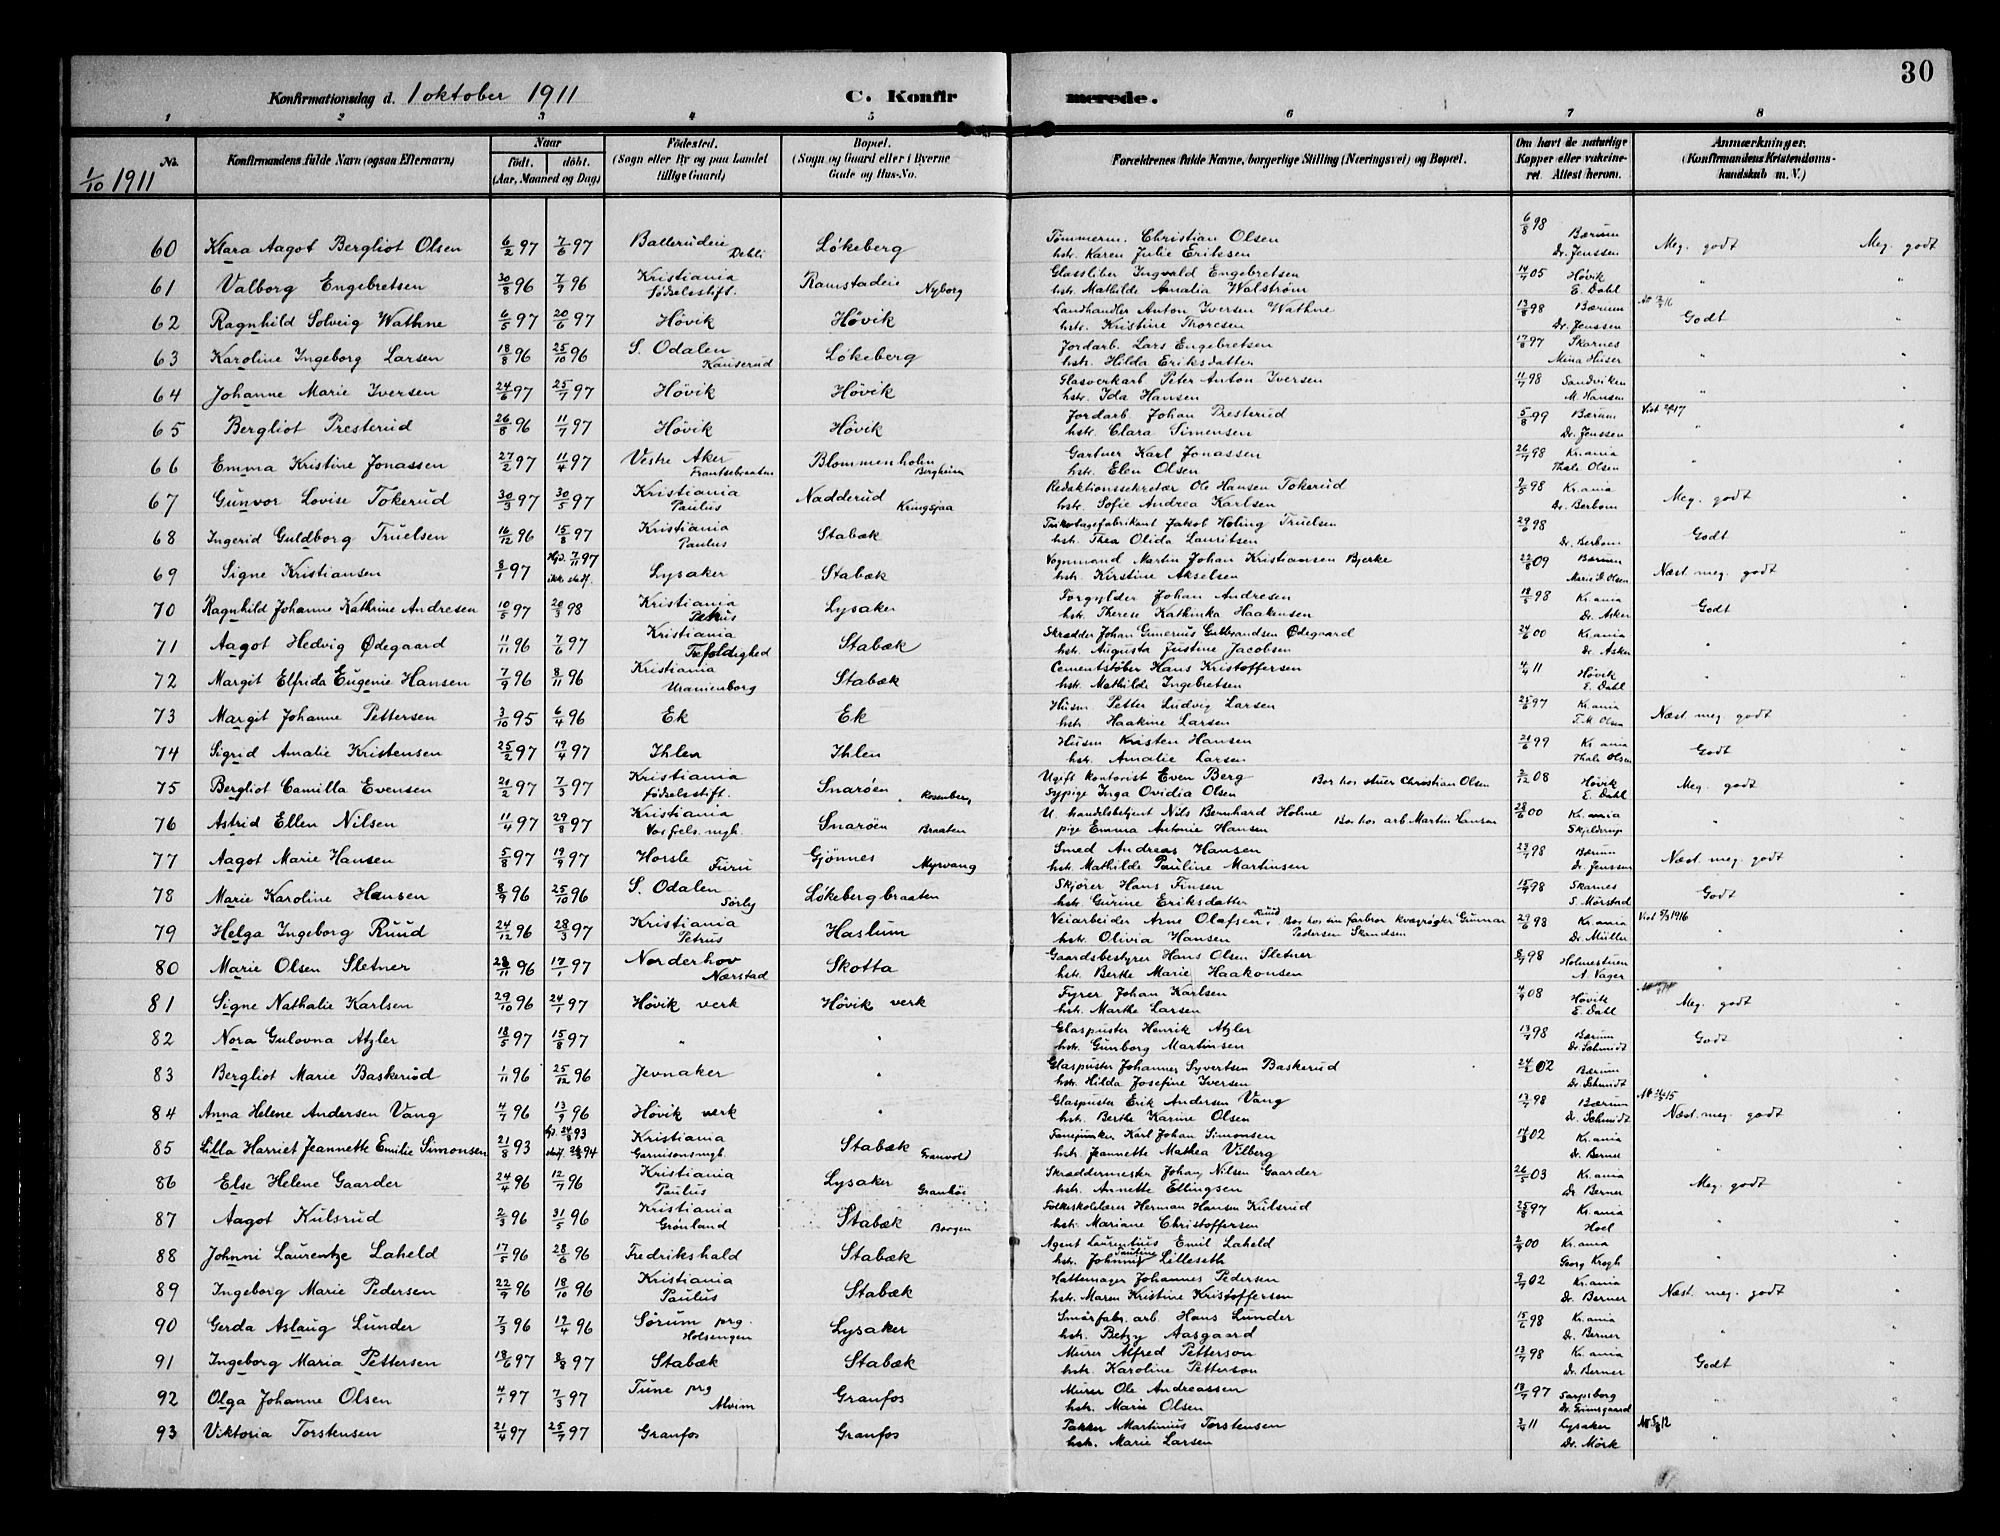 30
Konfirmationsdag d. 1 oktober 1911 C. Konfirmerede.
1 2 3 4 5 6 7 8
No. Konfirmandens fulde Navn (ogsaa Efternavn) Naar født. døbt. (Aar, Maaned og Dag) Fødested. (Sogn eller By og paa Landet tillige Gaard) Bopæl. (Sogn og Gaard eller i Byerne Gade og Hus-No. Forældrenes fulde Navne, borgerlige Stilling (Næringsvei) og Bopæl. Om havt de naturlige Kopper eller vakcineret. Attest herom. Anmærkninger. (Konfirmandens Kristendomskundskab m. V.)
1/10 1911
60 Klara Aagot Bergliot Olsen 6/2 97 7/6 97 Ballerudeie Dehli Løkeberg Tømmerm. Christian Olsen hstr. Karen Julie Eriksen 6/8 98 Bærum Dr. Jenssen Meg. godt Meg. godt
61 Valborg Engebretsen 30/8 96 7/9 96 Kristiania Fødselsstift. Ramstadeie Nyborg Glassliber Ingvald Engebretsen hstr. Mathilde Amalia Walstrøm 14/7 05 Høvik E. Dahl " "
62 Ragnhild Solveig Wathne 6/5 97 20/6 97 Høvik Høvik Landhandler Anton Iversen Wathne hstr. Kristine Thoresen 13/8 98 Bærum Dr. Jenssen Godt "
63 Karoline Ingeborg Larsen 18/8 96 25/10 96 S. Odalen Kauserud Løkeberg Jordarb. Lars Engebretsen hstr. Hilda Eriksdatter 17/8 97 Skarnes Mina Huser " "
64 Johanne Marie Iversen 24/6 97 25/7 97 Høvik Høvik Glasverkarb. Peter Anton Iversen hstr. Ida Hansen 11/7 98 Sandviken M. Hansen " "
65 Bergliot Presterud 26/8 96 11/7 97 Høvik Høvik Jordarb. Johan Presterud hstr. Clara Simensen 5/8 99 Bærum Dr. Jenssen "
66 Emma Kristine Jonassen 27/2 97 11/4 97 Vestre Aker Frantsebraaten Blommenholm Bergheim Gartner Karl Jonassen hstr. Elen Olsen 26/7 98 Kr.ania Thale Olsen " "
67 Gunvor Lovise Tokerud 30/3 97 30/5 97 Kristiania Paulus Nadderud Kringsjaa Redaktionssekretær Ole Hansen Tokerud hstr. Sofie Andrea Karlsen 2/5 98 Kr.ania Dr. Berbom Meg. godt "
68 Ingerid Guldborg Truelsen 16/12 96 15/8 97 Kristiania Paulus Stabæk Trikotagefabrikant Jakob Holing Truelsen hstr. Thea Olida Lauritsen 29/6 98 Dr. Berbom Godt "
69 Signe Kristiansen 8/1 97 Hjd. 7/11 97 ikke stadf. Lysaker Stabæk Vognmand Martin Johan Kristiansen Bjerke hstr. Kirstine Akselsen 22/8 09 Bærum Marie D. Olsen Næst meg. godt "
70 Ragnhild Johanne Kathrine Andresen 10/5 97 20/3 98 Kristiania Petrus Lysaker Forgylder Johan Andresen hstr. Therese Kathinka Haakensen 18/5 98 Kr.ania Dr. Asker Godt "
71 Aagot Hedvig Ødegaard 11/11 96 7/6 97 Kristiania Trefoldighed Stabæk Skrædder Johan Gunerius Gulbrandsen Ødegaard hstr. Augusta Justine Jacobsen 24/6 00 Kr.ania Dr. Asker " "
72 Margit Elfrida Eugenie Hansen 7/9 96 8/11 96 Kristiania Uranienborg Stabæk Cementstøber Hans Kristoffersen hstr. Mathilde Ingebretsen 4/4 11 Høvik E. Dahl " "
73 Margit Johanne Pettersen 3/10 95 6/4 96 Ek Ek Husm. Petter Ludvig Larsen hstr. Haakine Larsen 25/6 97 Kr.ania T. M. Olsen Næst meg. godt "
74 Sigrid Amalie Kristensen 25/2 97 19/4 97 Ihlen Ihlen Husm. Kristen Hansen hstr. Amalie Larsen 21/6 99 Kr.ania Thale Olsen Godt "
75 Bergliot Camilla Evensen 21/2 97 7/3 97 Kristiania Fødselsstift. Snarøen Rosenberg Ugift kontorist Even Berg Sypige Inga Ovidia Olsen Bor hos stuer Christian Olsen 2/12 08 Høvik E. Dahl Meg. godt "
76 Astrid Ellen Nilsen 11/4 97 29/8 97 Kristiania Vor frels. mgh. Snarøen Braaten U. handelsbetjent Nils Bernhard Holme pige Emma Antonie Hansen Bor hos arb. Martin Hansen 28/6 00 Kr.ania Skjelderup " "
77 Aagot Marie Hansen 5/8 97 19/9 97 Horsle Furu Gjønnes Myrvang Smed Andreas Hansen hstr. Mathilde Pauline Martinsen 23/7 98 Bærum Dr. Jenssen Næst meg. godt "
78 Marie Karoline Hansen 8/9 96 25/10 96 S. Odalen Sørby Løkebergbraaten Skjører Hans Finsen hstr. Gurine Eriksdatter 15/9 98 Skarnes S. Mørstad Godt "
79 Helga Ingeborg Ruud 24/12 96 28/3 97 Kristiania Petrus Haslum Veiarbeider Arne Olafsen Ruud hstr. Olivia Hansen Bor hos sin farbror kvægrøgter Gunnar Pedersen Skandsen 29/6 98 Kr.ania Dr. Müller Vist 5/3 1916 " "
80 Marie Olsen Sletner 28/11 96 17/1 97 Norderhov Nærstad Skotta Gaardsbestyrer Hans Olsen Sletner hstr. Berthe Marie Haakonsen 8/7 98 Holmestuen A. Vager " "
81 Signe Nathalie Karlsen 29/10 96 24/1 97 Høvik verk Høvik verk Fyrer Johan Karlsen hstr. Marthe Larsen 4/9 08 Høvik E. Dahl Meg. godt "
82 Nora Gulovna Atzler 18/5 97 15/8 97 " " Glaspuster Henrik Atzler hstr. Gunborg Martinsen 13/7 98 Bærum Dr. Schmidt Godt "
83 Bergliot Marie Baskerud 1/11 96 25/12 96 Jevnaker " Glaspuster Johannes Syvertsen Baskerud hstr. Hilda Josefine Iversen 24/2 02 Bærum Dr. Schmidt " "
84 Anna Helene Andersen Vang 4/7 96 13/9 96 Høvik verk " Glaspuster Erik Andersen Vang hstr. Berthe Karine Olsen 13/7 98 Bærum Dr. Schmidt Næst meg. godt "
85 Lilla Harriet Jeannette Emilie Simonsen 21/8 93 Hj. 24/8 93 stadf. 94 Kristiania Garnisonsmgh. Stabæk Granvold Fanejunker Karl Johan Simonsen hstr. Jeannette Mathea Vilberg 17/8 02 Kr.ania Dr. Berner " "
86 Else Helene Gaarder 24/4 96 12/7 96 Kristiania Paulus Lysaker Granhøi Skræddermester Johan Nilsen Gaarder hstr. Annette Ellingsen 26/5 03 Kr.ania Dr. Berner Meg. godt "
87 Aagot Kulsrud 2/3 96 31/5 96 Kristiania Grønland Stabæk Borgen Folkeskolelærer Herman Hansen Kulsrud hstr. Mariane Christoffersen 25/8 97 Kr.ania Hoel " "
88 Johnni Laurentze Laheld 17/5 96 28/6 96 Fredrikshald Stabæk Agent Laurentius Emil Laheld hstr. Johnny Pauline Lilleseth 2/9 00 Kr.ania Georg Krogh " "
89 Ingeborg Marie Pedersen 22/9 96 18/10 96 Kristiania Paulus Stabæk Hattemager Johannes Pedersen hstr. Maren Kristine Kristoffersen 9/7 02 Kr.ania Dr. Berner Næst. meg. godt "
90 Gerda Aslaug Lunder 7/3 96 19/4 96 Sørum prg. Holsengen Lysaker Smørfabr. arb. Hans Lunder hstr. Betzy Aasgaard 15/6 98 Kr.ania Dr. Berner " "
91 Ingeborg Maria Pettersen 18/6 97 8/8 97 Stabæk Stabæk Murer Alfred Petterson hstr. Karoline Petterson 13/7 98 Kr.ania Dr. Berner Godt "
92 Olga Johanne Olsen 4/1 97 7/3 97 Tune prg Alvim Granfos Murer Ole Andreassen hstr. Marie Olsen 18/7 97 Sarpsborg Dr. Grimsgaard " "
93 Viktoria Torstensen 21/4 97 25/7 97 Granfos Granfos Pakker Martinius Torstensen hstr. Marie Larsen 3/4 11 Lysaker Dr. Mørk " "